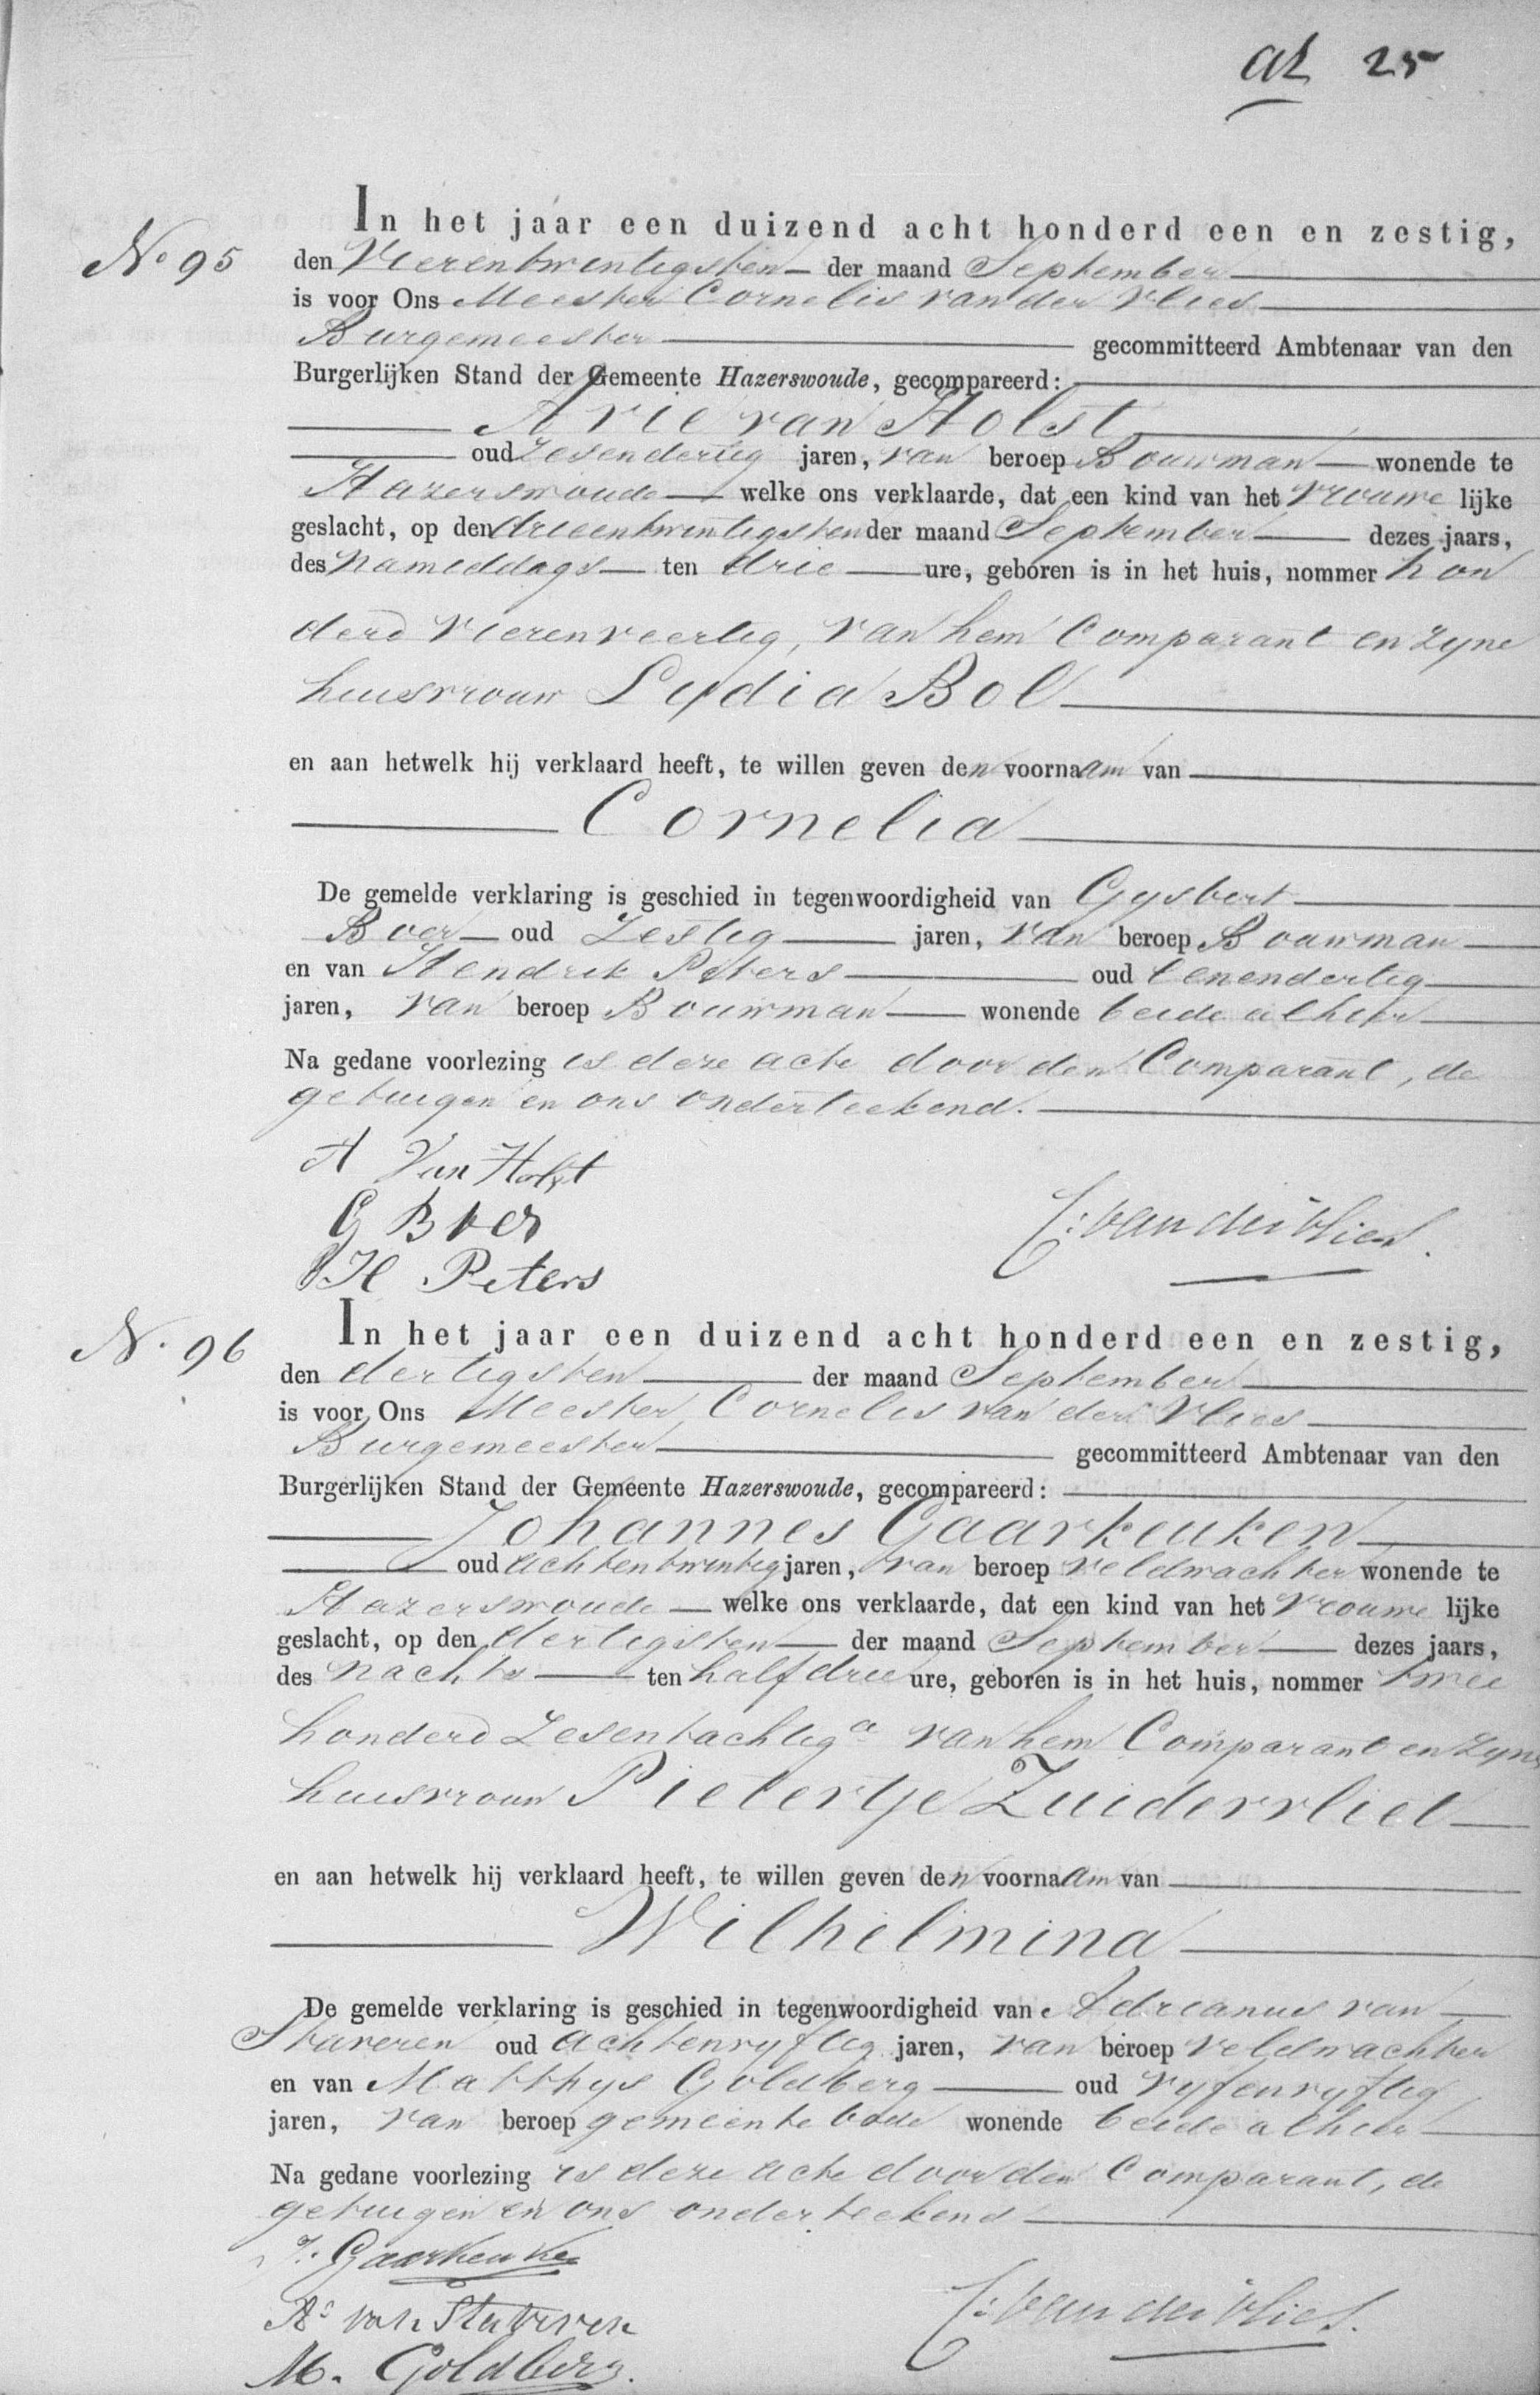 al 25
In het jaar een duizend acht honderd een en zestig,
No 95 den Vierentwintigsten der maand September
is voor Ons Meester Cornelis van der Vlies
Burgemeester gecommitteerd Ambtenaar van den
Burgerlijken Stand der Gemeente Hazerswoude, gecompareerd:
Arie van Holst
oud Zesendertig jaren, van beroep Bouwman wonende te
Hazerswoude welke ons verklaarde, dat een kind van het vrouwe lijke
geslacht, op den drieentwintigsten der maand September dezes jaars,
des nameddags ten drie ure, geboren is in het huis, nommer hon
derd vierenveertig, van hem Comparant en zyne
huisvrouw Lydia Bol
en aan hetwelk hij verklaard heeft, te willen geven den voornaam van
Cornelia
De gemelde verklaring is geschied in tegenwoordigheid van Gysbert
Boer oud Zestig jaren, van beroep Bouwman
en van Hendrik Peters oud eenendertig
jaren, van beroep Bouwman wonende beide alhier
Na gedane voorlezing is deze acte door den Comparant, de
getuigen en ons onderteekend.
A Van Holst
G Boer
H Peters
C: van der Vlies.
In het jaar een duizend acht honderd een en zestig,
N. 96 den dertigsten der maand September
is voor Ons Meester Cornelis van der Vlies
Burgemeester gecommitteerd Ambtenaar van den
Burgerlijken Stand der Gemeente Hazerswoude, gecompareerd:
Johannes Gaarkeuken
oud achtentwintig jaren, van beroep veldwachter wonende te
Hazerswoude welke ons verklaarde, dat een kind van het vrouwe lijke
geslacht, op den dertigsten der maand September dezes jaars,
des nachts ten half drie ure, geboren is in het huis, nommer twee
honderd Zesentachtig a van hem Comparant en zyne
huisvrouw Pietertje Zuidervliet
en aan hetwelk hij verklaard heeft, te willen geven den voornaam van
Wilhelmina
De gemelde verklaring is geschied in tegenwoordigheid van Adrianus van
Staveren oud achtenvyftig jaren, van beroep veldwachter
en van Matthys Goldberg oud vyfenvyftig
jaren, van beroep gemeente bode wonende beide alhier
Na gedane voorlezing is deze acte door den Comparant, de
getuigen en ons onderteekend
J. Gaarkeuken
As van Staveren
M. Goldberg.
C: van der Vlies.